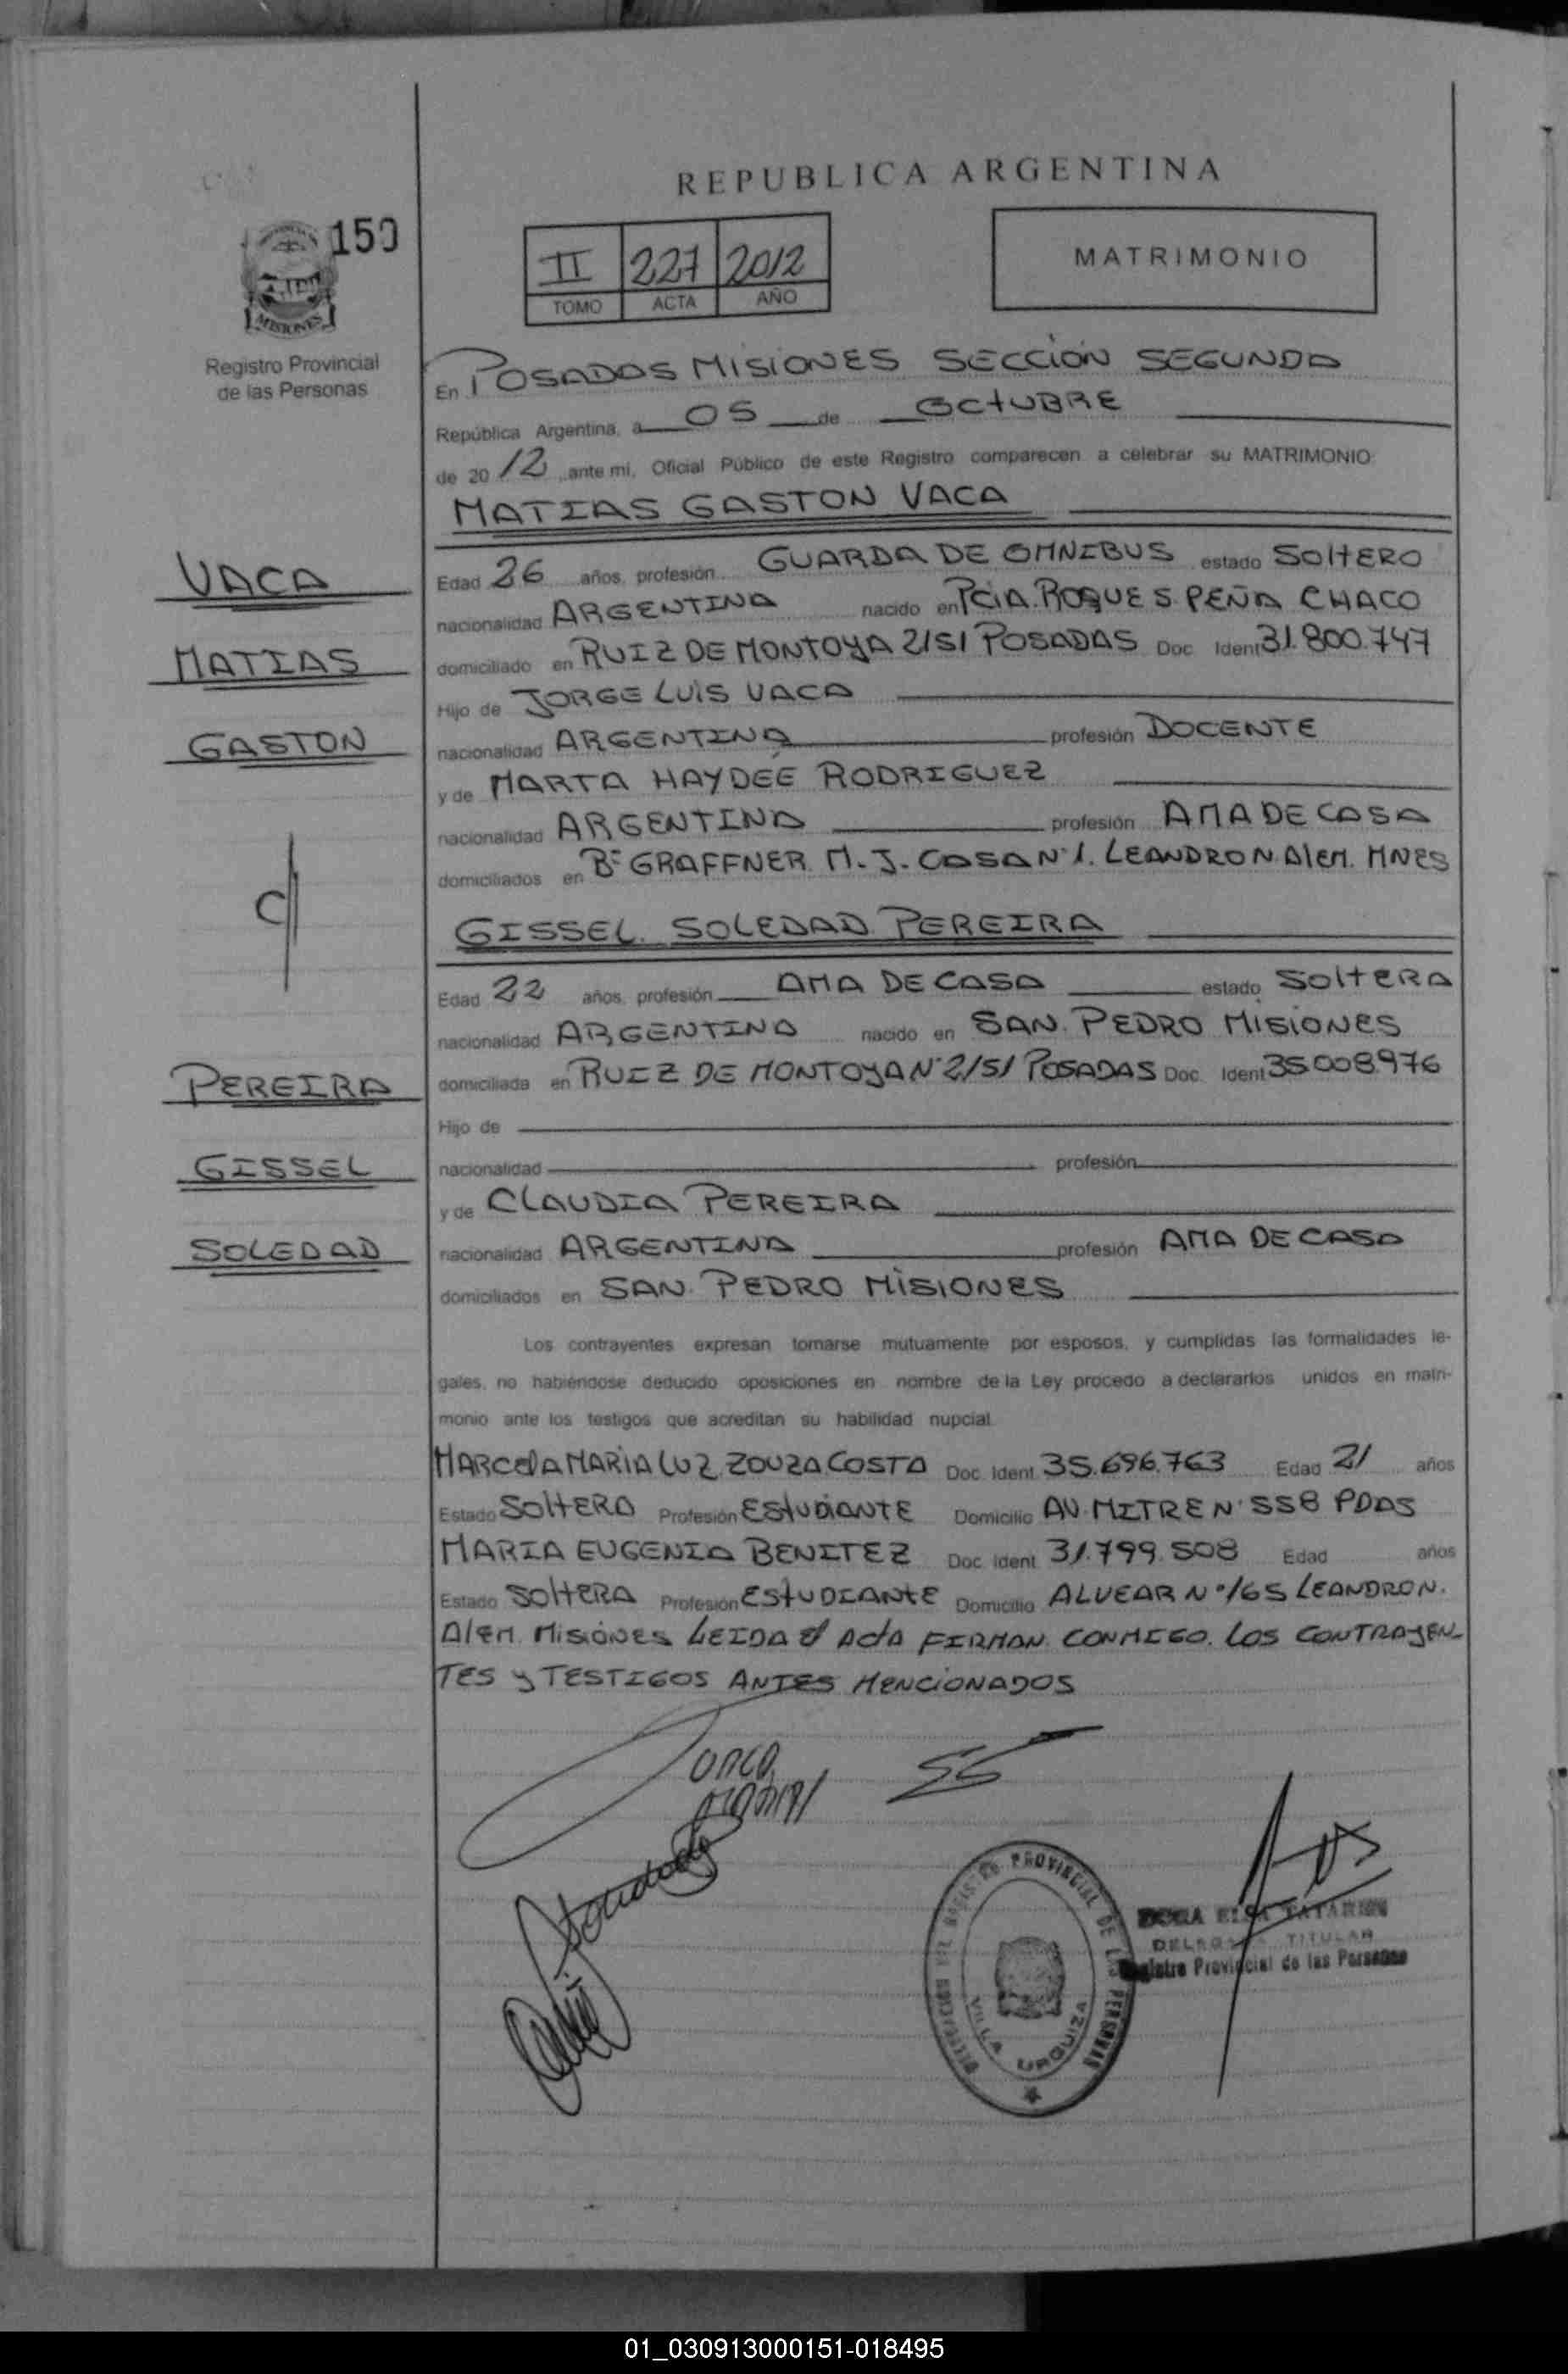 REPUBLICA ARGENTINA
150
II 227 2012
TOMO ACTA AÑO
MATRIMONIO
MISIONES
Registro Provincial
de las Personas
En POSADAS MISIONES SECCION SEGUNDA
República Argentina, a 05 de OCTUBRE
de 2012, ante mi, Oficial Público de este Registro comparecen a celebrar su MATRIMONIO:
MATIAS GASTON VACA
VACA
MATIAS
GASTON
Edad 26 años, profesión GUARDA DE OMNIBUS estado SOLTERO
nacionalidad ARGENTINA nacido en PCIA. ROQUE S. PEÑA CHACO
domiciliado en RUIZ DE MONTOYA 2151 POSADAS Doc. Ident 31.800.747
Hijo de JORGE LUIS VACA
nacionalidad ARGENTINA profesión DOCENTE
y de MARTA HAYDEE RODRIGUEZ
nacionalidad ARGENTINA profesión AMA DE CASA
domiciliados en Bº GRAFFNER M.J. CASA Nº 1. LEANDRO N. ALEM. MNES
GISSEL SOLEDAD PEREIRA
PEREIRA
GISSEL
SOLEDAD
Edad 22 años, profesión AMA DE CASA estado SOLTERA
nacionalidad ARGENTINA nacido en SAN. PEDRO MISIONES
domiciliada en RUIZ DE MONTOYA Nº 2151 POSADAS Doc. Ident 35.008.976
Hijo de
nacionalidad profesión
y de CLAUDIA PEREIRA
nacionalidad ARGENTINA profesión AMA DE CASA
domiciliados en SAN. PEDRO MISIONES
Los contrayentes expresan tomarse mutuamente por esposos, y cumplidas las formalidades le-
gales, no habiéndose deducido oposiciones en nombre de la Ley procedo a declararlos unidos en matri-
monio ante los testigos que acreditan su habilidad nupcial.
MARCELA MARIA LUZ ZOUZA COSTA Doc. Ident. 35.696.763 Edad 21 años
Estado SOLTERA Profesión ESTUDIANTE Domicilio AV. MITRE Nº 558 PDAS
MARIA EUGENIA BENITEZ Doc. Ident. 31.799.508 Edad años
Estado SOLTERA Profesión ESTUDIANTE Domicilio ALVEAR Nº 165 LEANDRO N.
ALEM. MISIONES LEIDA el ACTA FIRMAN CONMIGO. LOS CONTRAYEN-
TES y TESTIGOS ANTES MENCIONADOS
REGISTRO PROVINCIAL DE LAS PERSONAS
VILLA URQUIZA
ELSA
TITULAR
Registro Provincial de las Personas
01_030913000151-018495